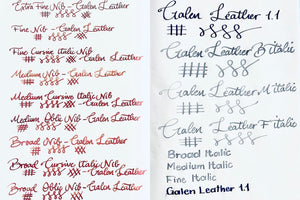 Extra Fine Nib - Galen Leather
Fine Nib - Galen Leather
Fine Cursive Italic Nib
Galen Leather
Medium Nib - Galen Leather
Medium Cursive Italic Nib
Galen Leather
Medium Oblic Nib - Galen Leather
Broad Nib - Galen Leather
Broad Cursive Italic Nib
Galen Leather
Broad Oblic Nib - Galen Leather
Galen Leather 1.1
Galen Leather B italic
Galen Leather M italic
Galen Leather F italic
Broad Italic
Medium Italic
Fine Italic
Galen Leather 1.1